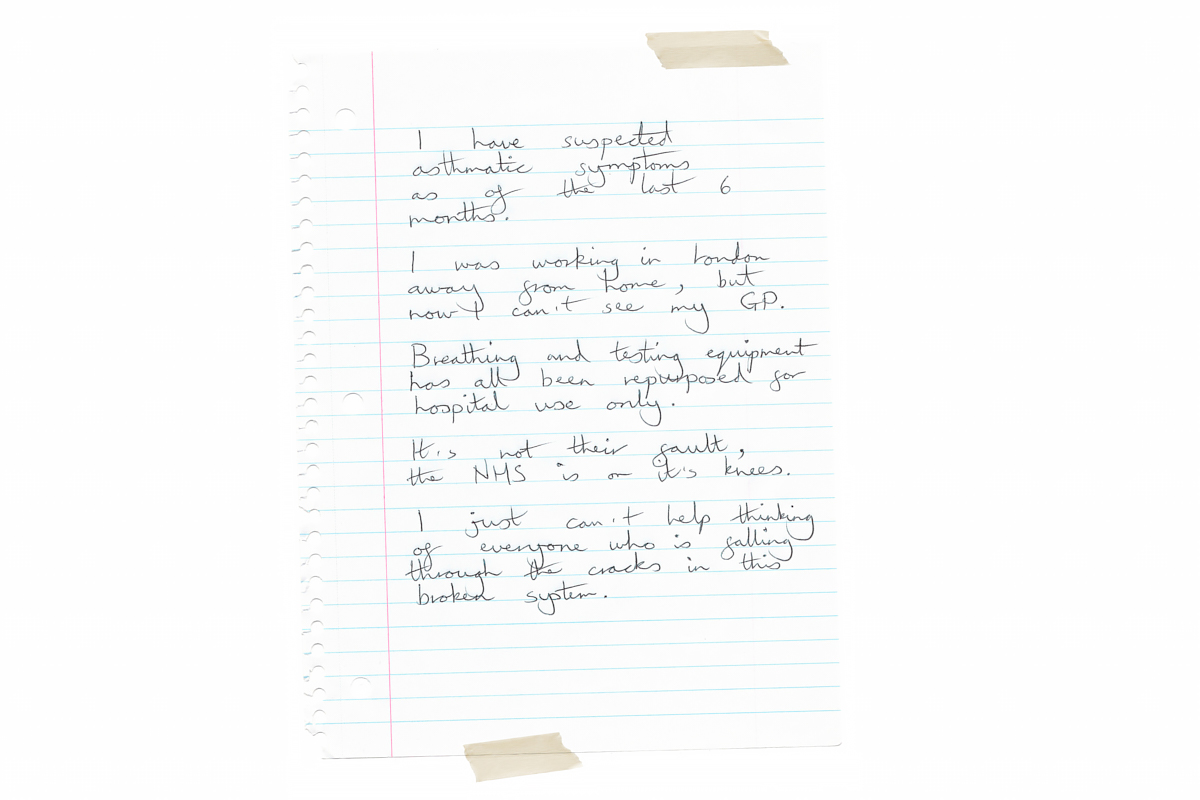 I have suspected
asthmatic symptoms
as of the last 6
months.
I was working in London
away from home, but
now I can't see my GP.
Breathing and testing equipment
has all been repurposed for
hospital use only.
It's not their fault,
the NHS is on it's knees.
I just can't help thinking
of everyone who is falling
through the cracks in this
broken system.